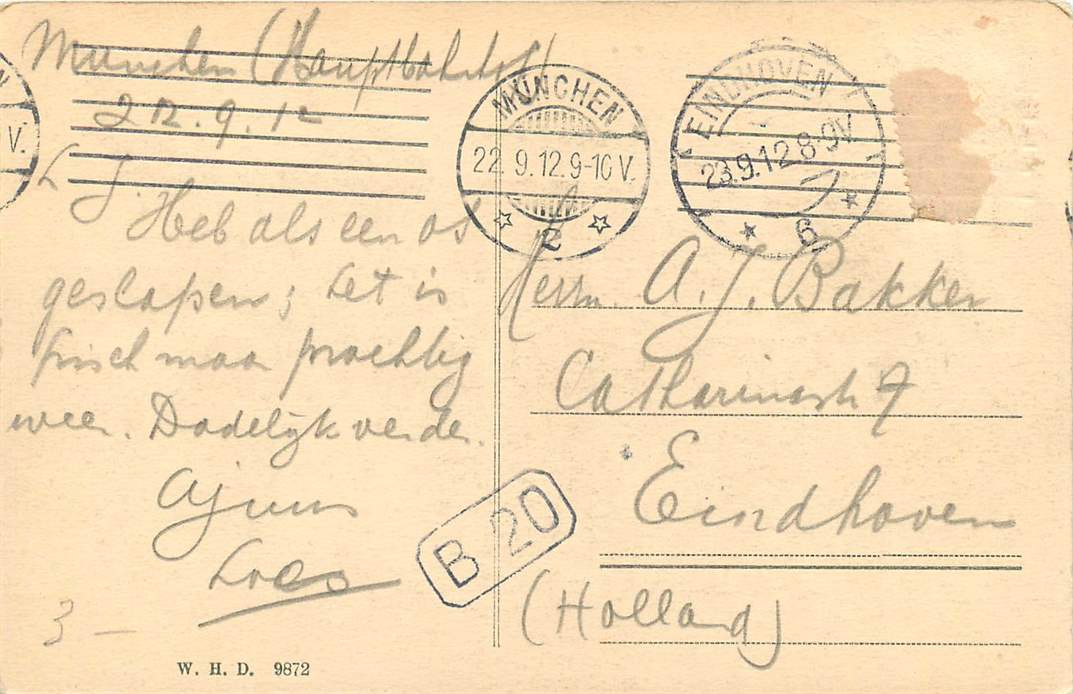 München (Hauptbahnhof)
22.9.12
L J.
Heb als een os
geslapen; het is
frisch maar prachtig
weer. Dadelijk verder.
Ajuus
Loes
3 –
W. H. D. 9872
MÜNCHEN
22. 9. 12. 9-10 V.
2
EINDHOVEN
23.9.12 8-9V
6
V.
Herrn. A. J. Bakker
Catharinastr 7
Eindhoven
(Holland)
B 20